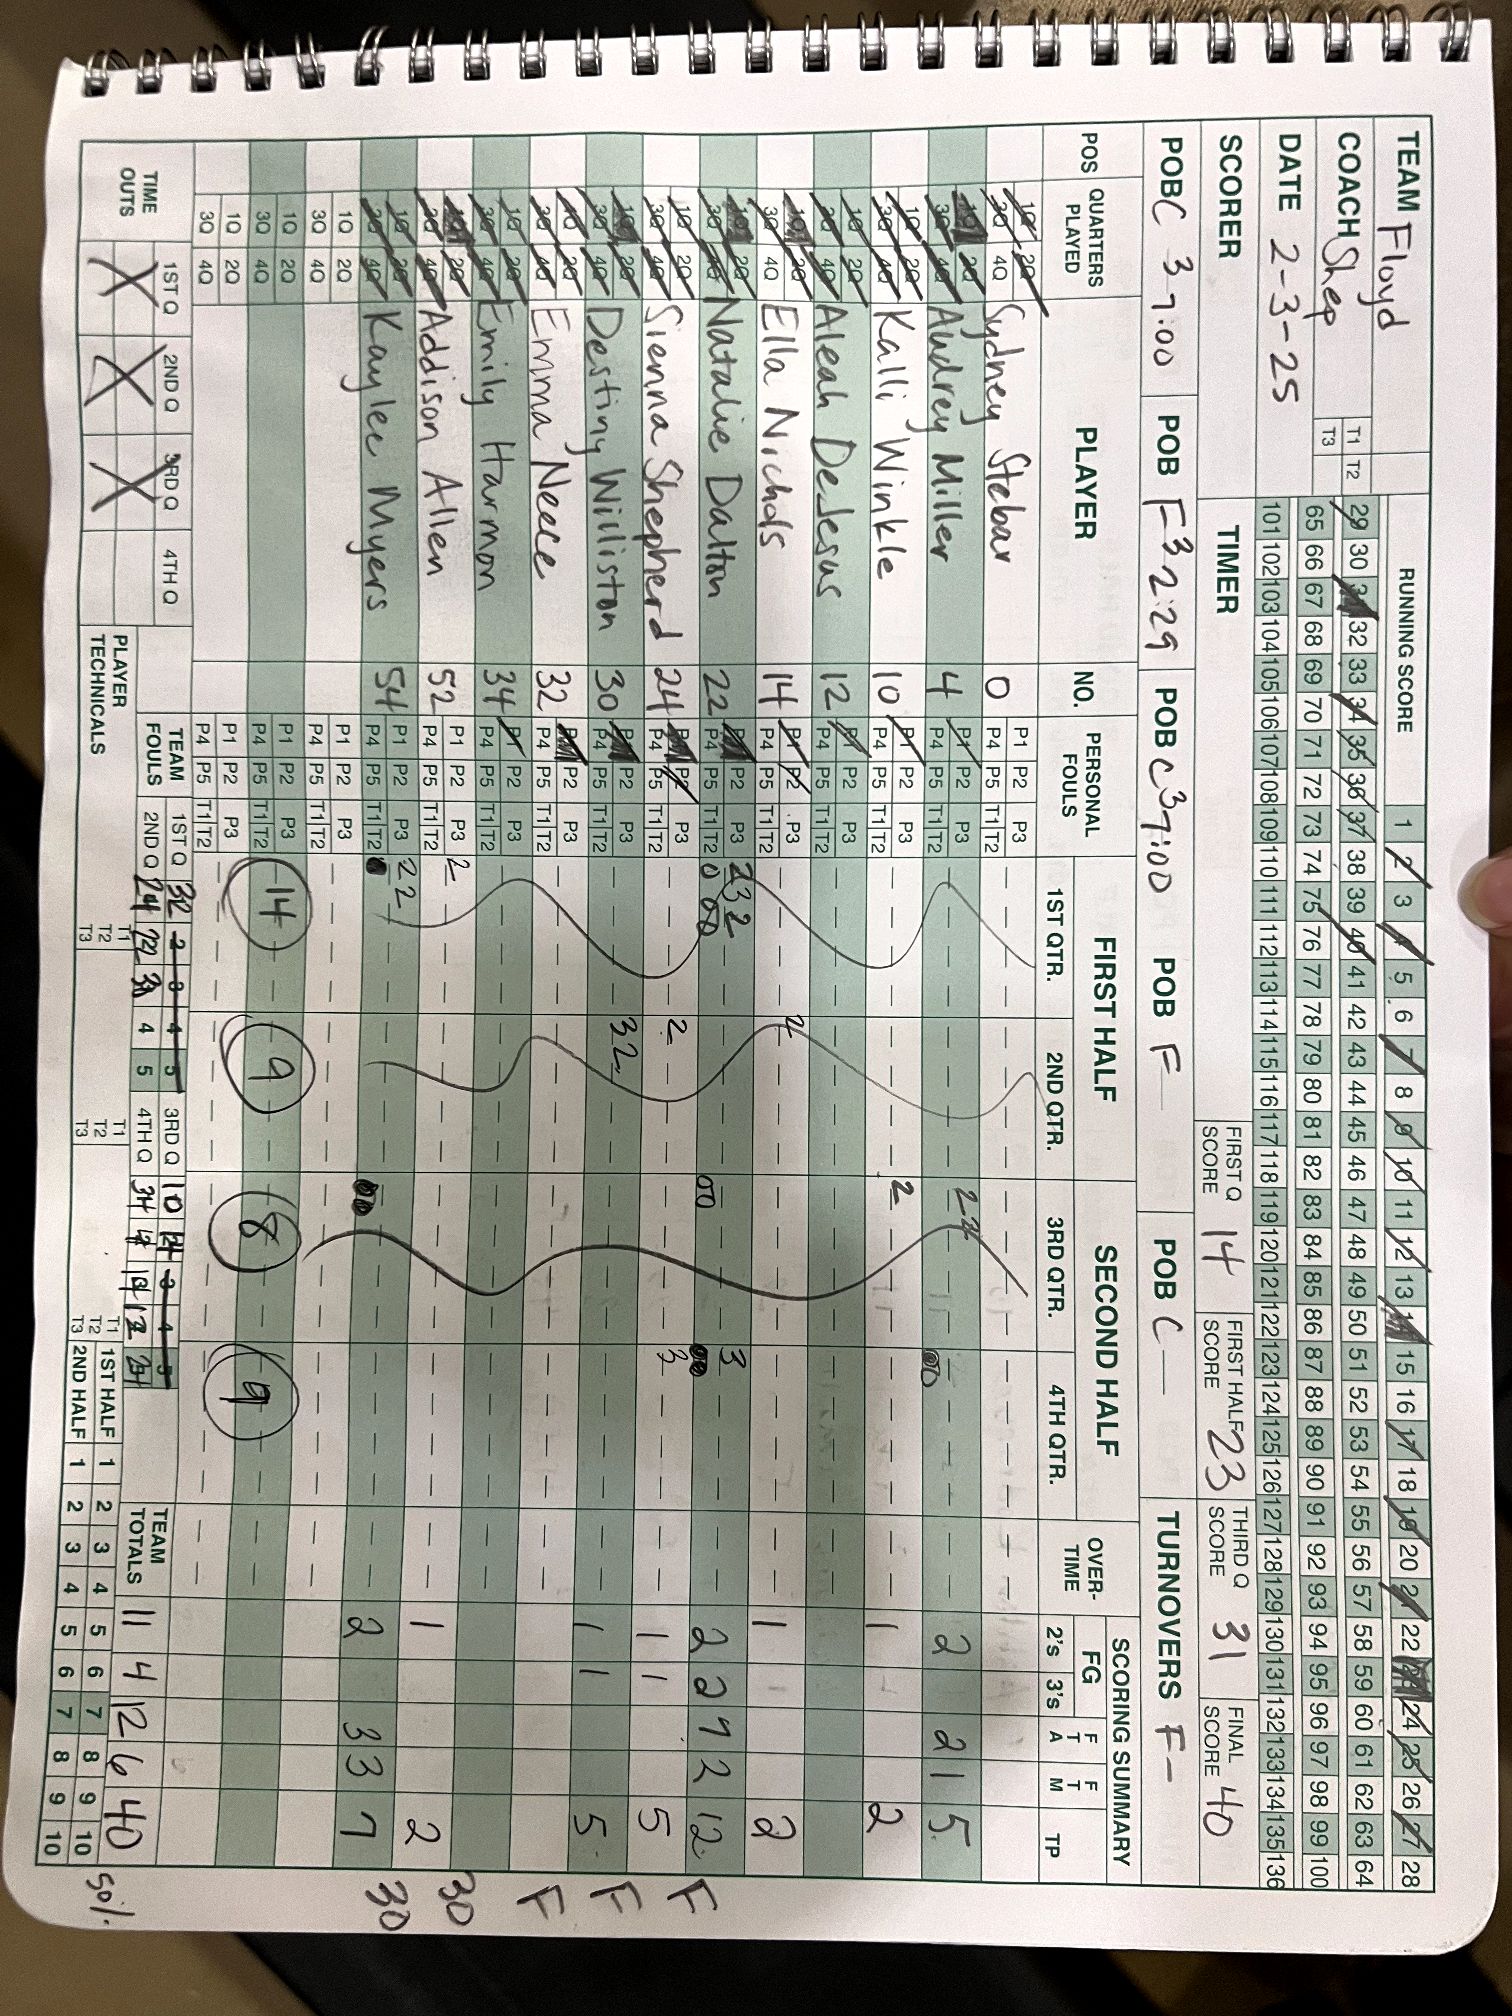 TEAM Floyd
RUNNING SCORE 1 2 3 4 5 6 7 8 9 10 11 12 13 14 15 16 17 18 19 20 21 22 23 24 25 26 27 28
COACH Shep T1 T2 T3
29 30 31 32 33 34 35 36 37 38 39 40 41 42 43 44 45 46 47 48 49 50 51 52 53 54 55 56 57 58 59 60 61 62 63 64
65 66 67 68 69 70 71 72 73 74 75 76 77 78 79 80 81 82 83 84 85 86 87 88 89 90 91 92 93 94 95 96 97 98 99 100
DATE 2-3-25
101 102 103 104 105 106 107 108 109 110 111 112 113 114 115 116 117 118 119 120 121 122 123 124 125 126 127 128 129 130 131 132 133 134 135 136
SCORER TIMER FIRST Q SCORE 14 FIRST HALF SCORE 23 THIRD Q SCORE 31 FINAL SCORE 40
POB C 3 7:00 POB F 3 2:29 POB C 3 7:00 POB F POB C TURNOVERS F-
POS QUARTERS PLAYED PLAYER NO. PERSONAL FOULS FIRST HALF SECOND HALF OVER-TIME SCORING SUMMARY
1ST QTR. 2ND QTR. 3RD QTR. 4TH QTR. FG 2's 3's FTA FTM TP
1Q 2Q 3Q 4Q Sydney Stebar 0 P1 P2 P3 P4 P5 T1 T2
1Q 2Q 3Q 4Q Audrey Miller 4 P1 P2 P3 P4 P5 T1 T2 2 2 2 1 5
1Q 2Q 3Q 4Q Kalli Winkle 10 P1 P2 P3 P4 P5 T1 T2 2 1 2
1Q 2Q 3Q 4Q Aleah DeJesus 12 P1 P2 P3 P4 P5 T1 T2
1Q 2Q 3Q 4Q Ella Nichols 14 P1 P2 P3 P4 P5 T1 T2 2 1 2
1Q 2Q 3Q 4Q Natalie Dalton 22 P1 P2 P3 P4 P5 T1 T2 2 3 2 3 2 2 7 2 12
1Q 2Q 3Q 4Q Sienna Shepherd 24 P1 P2 P3 P4 P5 T1 T2 2 3 1 1 5 F
1Q 2Q 3Q 4Q Destiny Williston 30 P1 P2 P3 P4 P5 T1 T2 3 2 1 1 5 F
1Q 2Q 3Q 4Q Emma Neece 32 P1 P2 P3 P4 P5 T1 T2 F
1Q 2Q 3Q 4Q Emily Harmon 34 P1 P2 P3 P4 P5 T1 T2
1Q 2Q 3Q 4Q Addison Allen 52 P1 P2 P3 P4 P5 T1 T2 2 1 2 30
1Q 2Q 3Q 4Q Kaylee Myers 54 P1 P2 P3 P4 P5 T1 T2 2 2 2 3 3 7 30
1Q 2Q 3Q 4Q P1 P2 P3 P4 P5 T1 T2
1Q 2Q 3Q 4Q P1 P2 P3 P4 P5 T1 T2 14 9 8 9
1Q 2Q 3Q 4Q P1 P2 P3 P4 P5 T1 T2
TIME OUTS 1ST Q 2ND Q 3RD Q 4TH Q
TEAM FOULS 1ST Q 32 2 3 4 5 3RD Q 10 3 4 5
2ND Q 24 22 4 5 4TH Q 34
TEAM TOTALS 11 4 12 6 40
PLAYER TECHNICALS T1 T2 T3 T1 T2 T3 T1 T2 T3
1ST HALF 1 2 3 4 5 6 7 8 9 10
2ND HALF 1 2 3 4 5 6 7 8 9 10
50%